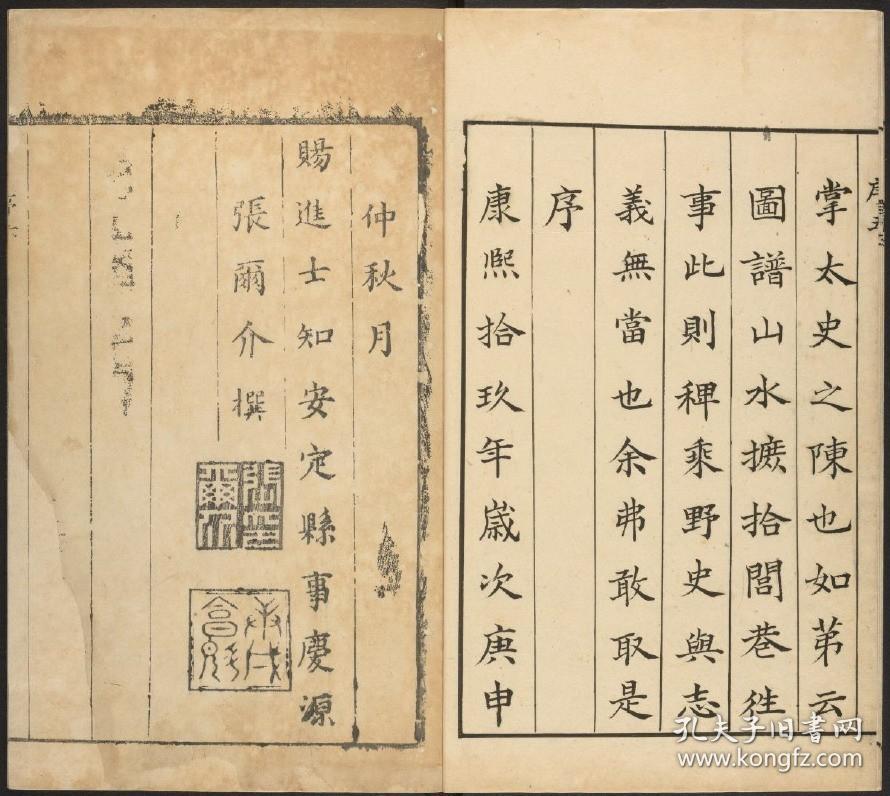 掌太史之陳也如第云
圖譜山水摭拾閭巷徃
事此則稗乘野史與志
義無當也余弗敢取是
序
康熙拾玖年歲次庚申
仲秋月
賜進士知安定縣事慶源
張爾介撰
張爾介印
孔夫子旧书网
www.kongfz.com